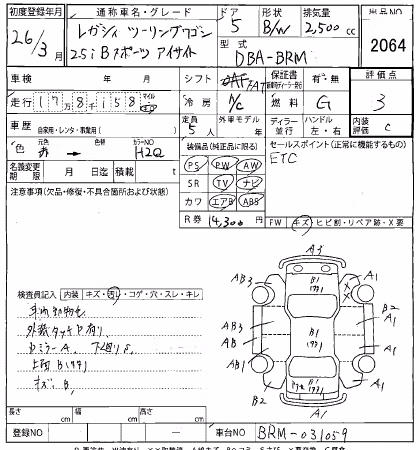 初度登録年月 通称車名・グレード ドア 形状 排気量 出品NO
26/3月 レガシィ ツーリングワゴン 5 B/W 2,500cc
2.5i Bスポーツ アイサイト 型式 2064
DBA-BRM
車検 年 月 シフト FAT 保証書 有・無 評価点
走行 17万8千158 マイル 冷房 A/C 燃料 G 3
車歴 自家用・レンタ・事業用( ) 定員 5人 外車モデル 年 ディーラー 並行 ハンドル 左・右 内装評価 C
色 元色 赤 → 色替 カラーNO H2Q 装備品(純正品に限る) セールスポイント(正常に機能するもの)
名義変更期限 月 日迄 積載 t PS PW AW ETC
注意事項(欠品・修復・不具合箇所および状態) SR TV ナビ
カワ エアB ABS
R券 14,300円 FW キズ・ヒビ割・リペア跡・X要
A3
AB3 B1 A1
検査員記入 内装 キズ・汚れ・コゲ・穴・スレ・キレ
外装タッチ有り AB3 B1 B2 A1
ミラーA、下廻りS
上面B AB1 B1 A1
キズB B2 A1
長さ cm 幅 cm 高さ cm
登録NO 車台NO BRM-031059